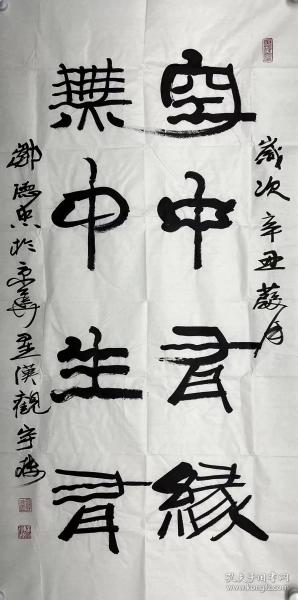 歲次辛丑
空中有緣
無中生有
鄧德忠於京華星漢觀宇樓
孔夫子旧书网